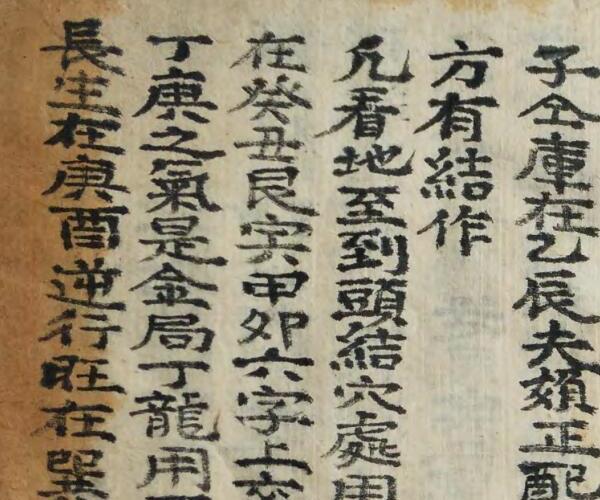 子金庫在乙辰夫婦正配
方有結作
凡看地至到頭結穴處用
在癸丑艮寅甲卯六字上
丁庚之氣是金局丁龍用
長生在庚酉逆行旺在巽